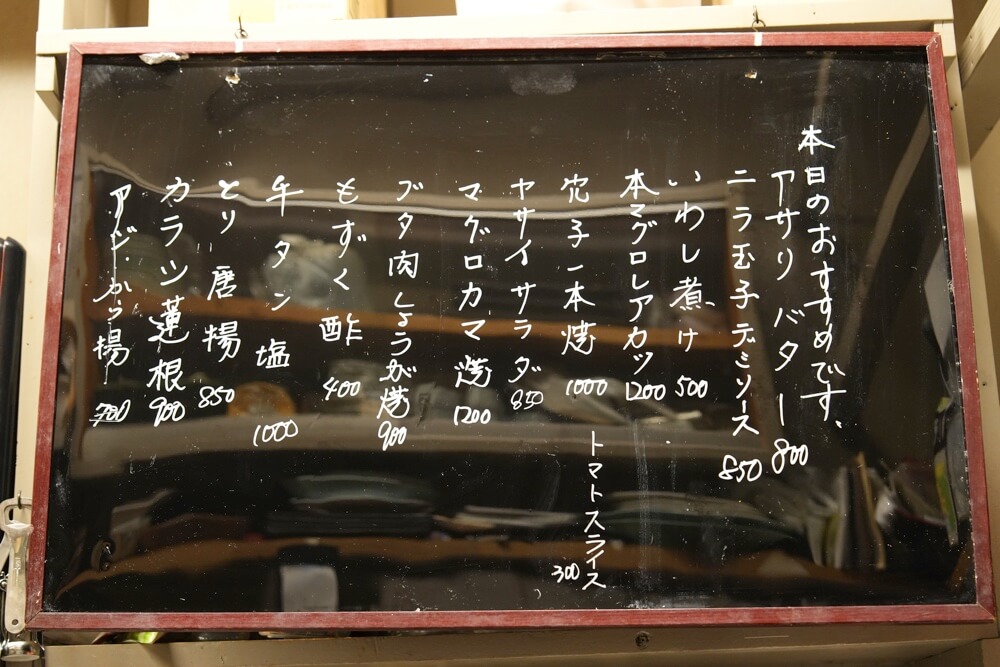 本日のおすすめです、
アサリバター 800
ニラ玉子デミソース 850
いわし煮け 500
本マグロレアカツ 1200
穴子一本焼 1000
トマトスライス 300
ヤサイサラダ 850
マグロカマ焼 1200
ブタ肉しょうが焼 900
もずく酢 400
牛タン塩 1000
とり唐揚 850
カラシ蓮根 900
アジから揚 700